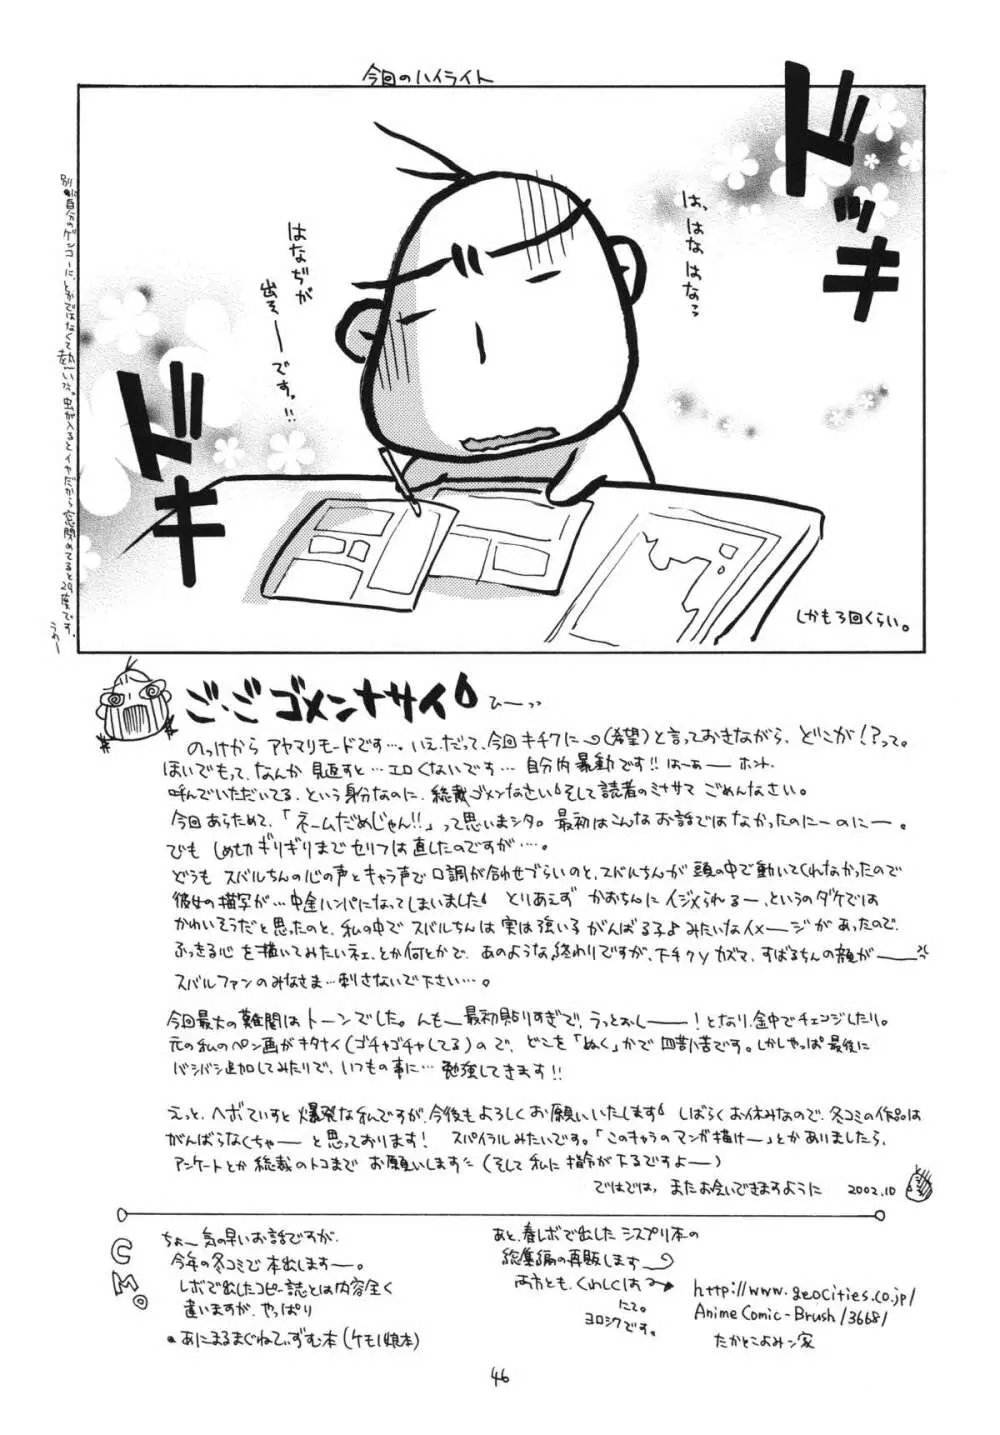 今回のハイライト
ドッキ
ドキ
は、はなはなっ
はなぢが
出そーです。!!
しかも3回くらい。
別に自分のゲンコーに、とかではなくて熱いな。虫が入るとイヤだから窓閉めてると29度です。うがー
ご・ごゴメンナサイ
ひーっっ
のっけから アヤマリモードです…。いえ、だって、今回キチクに(希望)と言っておきながら、どこが!?って。
ほいでもって、なんか見返すと…エロくないです…自分内暴動です!!はーあー ホント。
呼んでいただいてる、という身分なのに、総裁ゴメンなさい そして読者のミナサマ ごめんなさい。
今回あらためて、「ネームだめじゃん!!」って思いまシタ。最初はこんなお話ではなかったのにーのにー。
でも しめ切ギリギリまでセリフは直したのですが…。
どうも スバルちんの心の声とキャラ声で口調が合わせづらいのと、スバルちんが頭の中で動いてくれなかったので
彼女の描写が…中途ハンパになってしまいました とりあえず かおちんにイジメられるー、というのダケでは
かわいそうだと思ったのと、私の中でスバルちんは実は強いるがんばる子よみたいなイメージがあったので、
ふっきる心を描いてみたいネェ、とか何とかで、あのような終わりですが、下チクyカズマ、すばるちんの顔がー
スバルファンのみなさま…刺さないで下さい…。
今回最大の難関はトーンでした。んもー最初貼りすぎで、うっとおしー!となり、途中でチェンジしたり。
元の私のペン画がキタナイ(ゴチャゴチャしてる)ので、どこを「ぬく」かで四苦八苦です。しかしやっぱ最後に
バシバシ追加してみたりで、いつもの事に…勉強してきます!!
えっと、ヘボていすと爆発な私ですが、今後もよろしくお願いいたします しばらくお休みなので、冬コミの作品は
がんばらなくちゃーと思っております! スパイラルみたいです。「このキャラのマンガ描けー」とかありましたら、
アンケートとか総裁のトコまで お願いします (そして私に指令が下るですよー)
ではでは、またお会いできますように 2002.10
CM。
ちょー気の早いお話ですが、
今年の冬コミで本出しますー。
レボで出したコピー誌とは内容全く
違いますが、やっぱり
あにまるまぐねてぃずむ本(ケモノ娘本)
あと、春レボで出した シスプリ本の
総集編の再販します
両方とも、くわしくは
にて。
ヨロシクです。
http://www.geocities.co.jp/
AnimeComic-Brush/3668/
たかとこよみン家
46